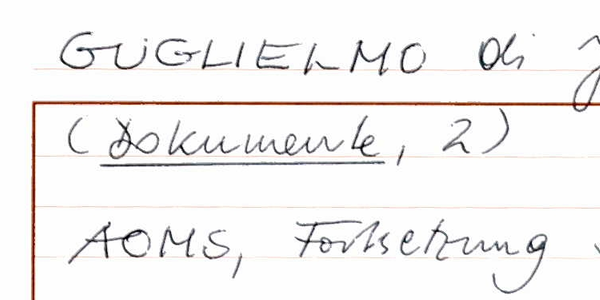 GUGLIELMO di
(Dokumente, 2)
AOMS, Fortsetzung